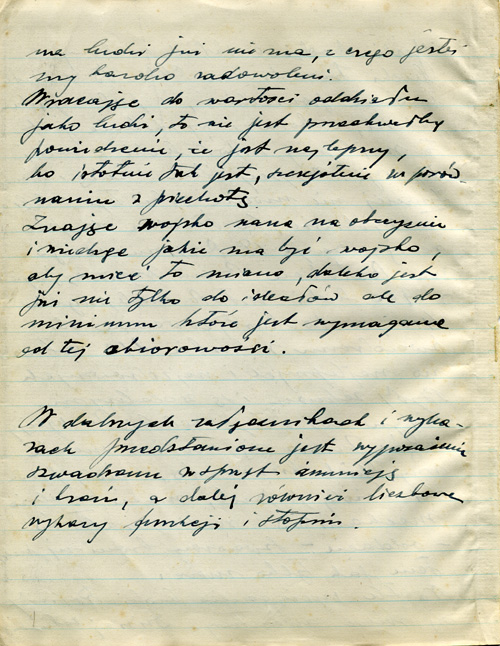 na ludzi już nie ma, z czego jesteś
my bardzo zadowoleni.
Wracając do wartości oddziału
jako ludzi, to nie jest przechwałką
powiedzenie, że jest najlepszy,
bo istotnie tak jest, szczególnie w porów-
naniu z piechotą.
Znając wojsko nasze na obczyźnie
i wiedząc jakie ma być wojsko,
aby mieć to miano, daleko jest
już nie tylko do ideałów ale do
minimum które jest wymagane
od tej zbiorowości.
W dalszych załącznikach i wyka-
zach przedstawione jest wyposażenie
szwadronu w sprzęt amunicję
i broń, a dalej również liczbowe
wykazy funkcji i stopni.